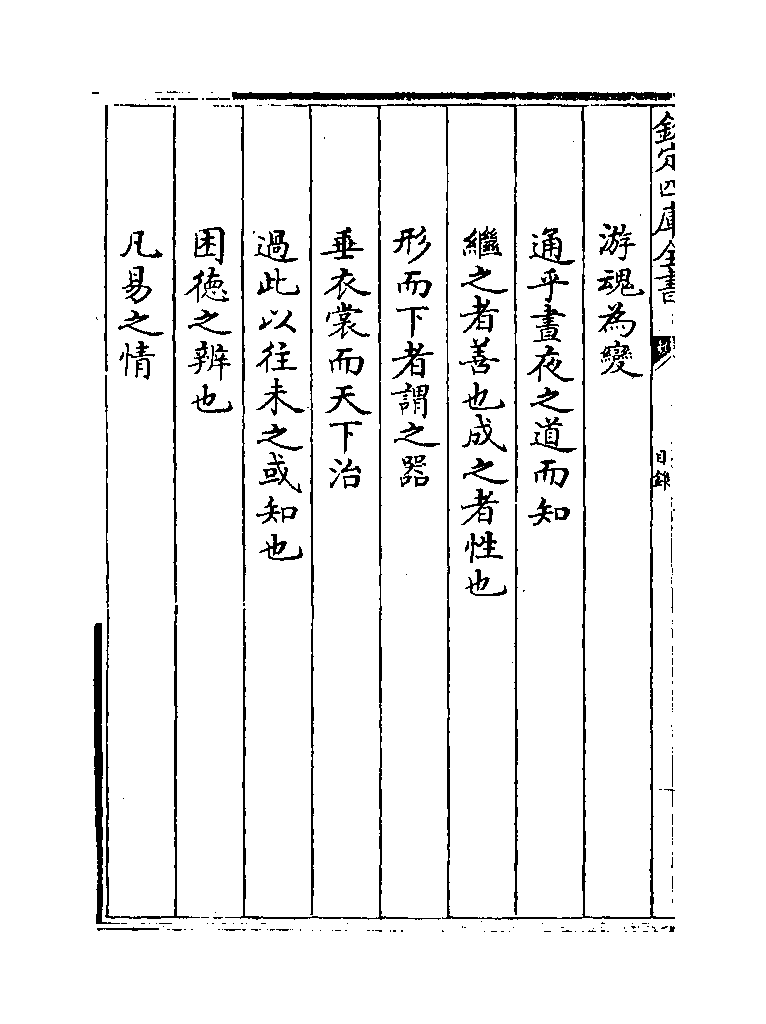 欽定四庫全書
目錄
游魂為變
通乎晝夜之道而知
繼之者善也成之者性也
形而下者謂之器
垂衣裳而天下治
過此以往未之或知也
困德之辨也
凡易之情